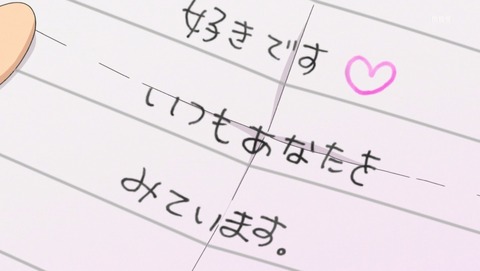 好きです♡
いつもあなたを
みています。